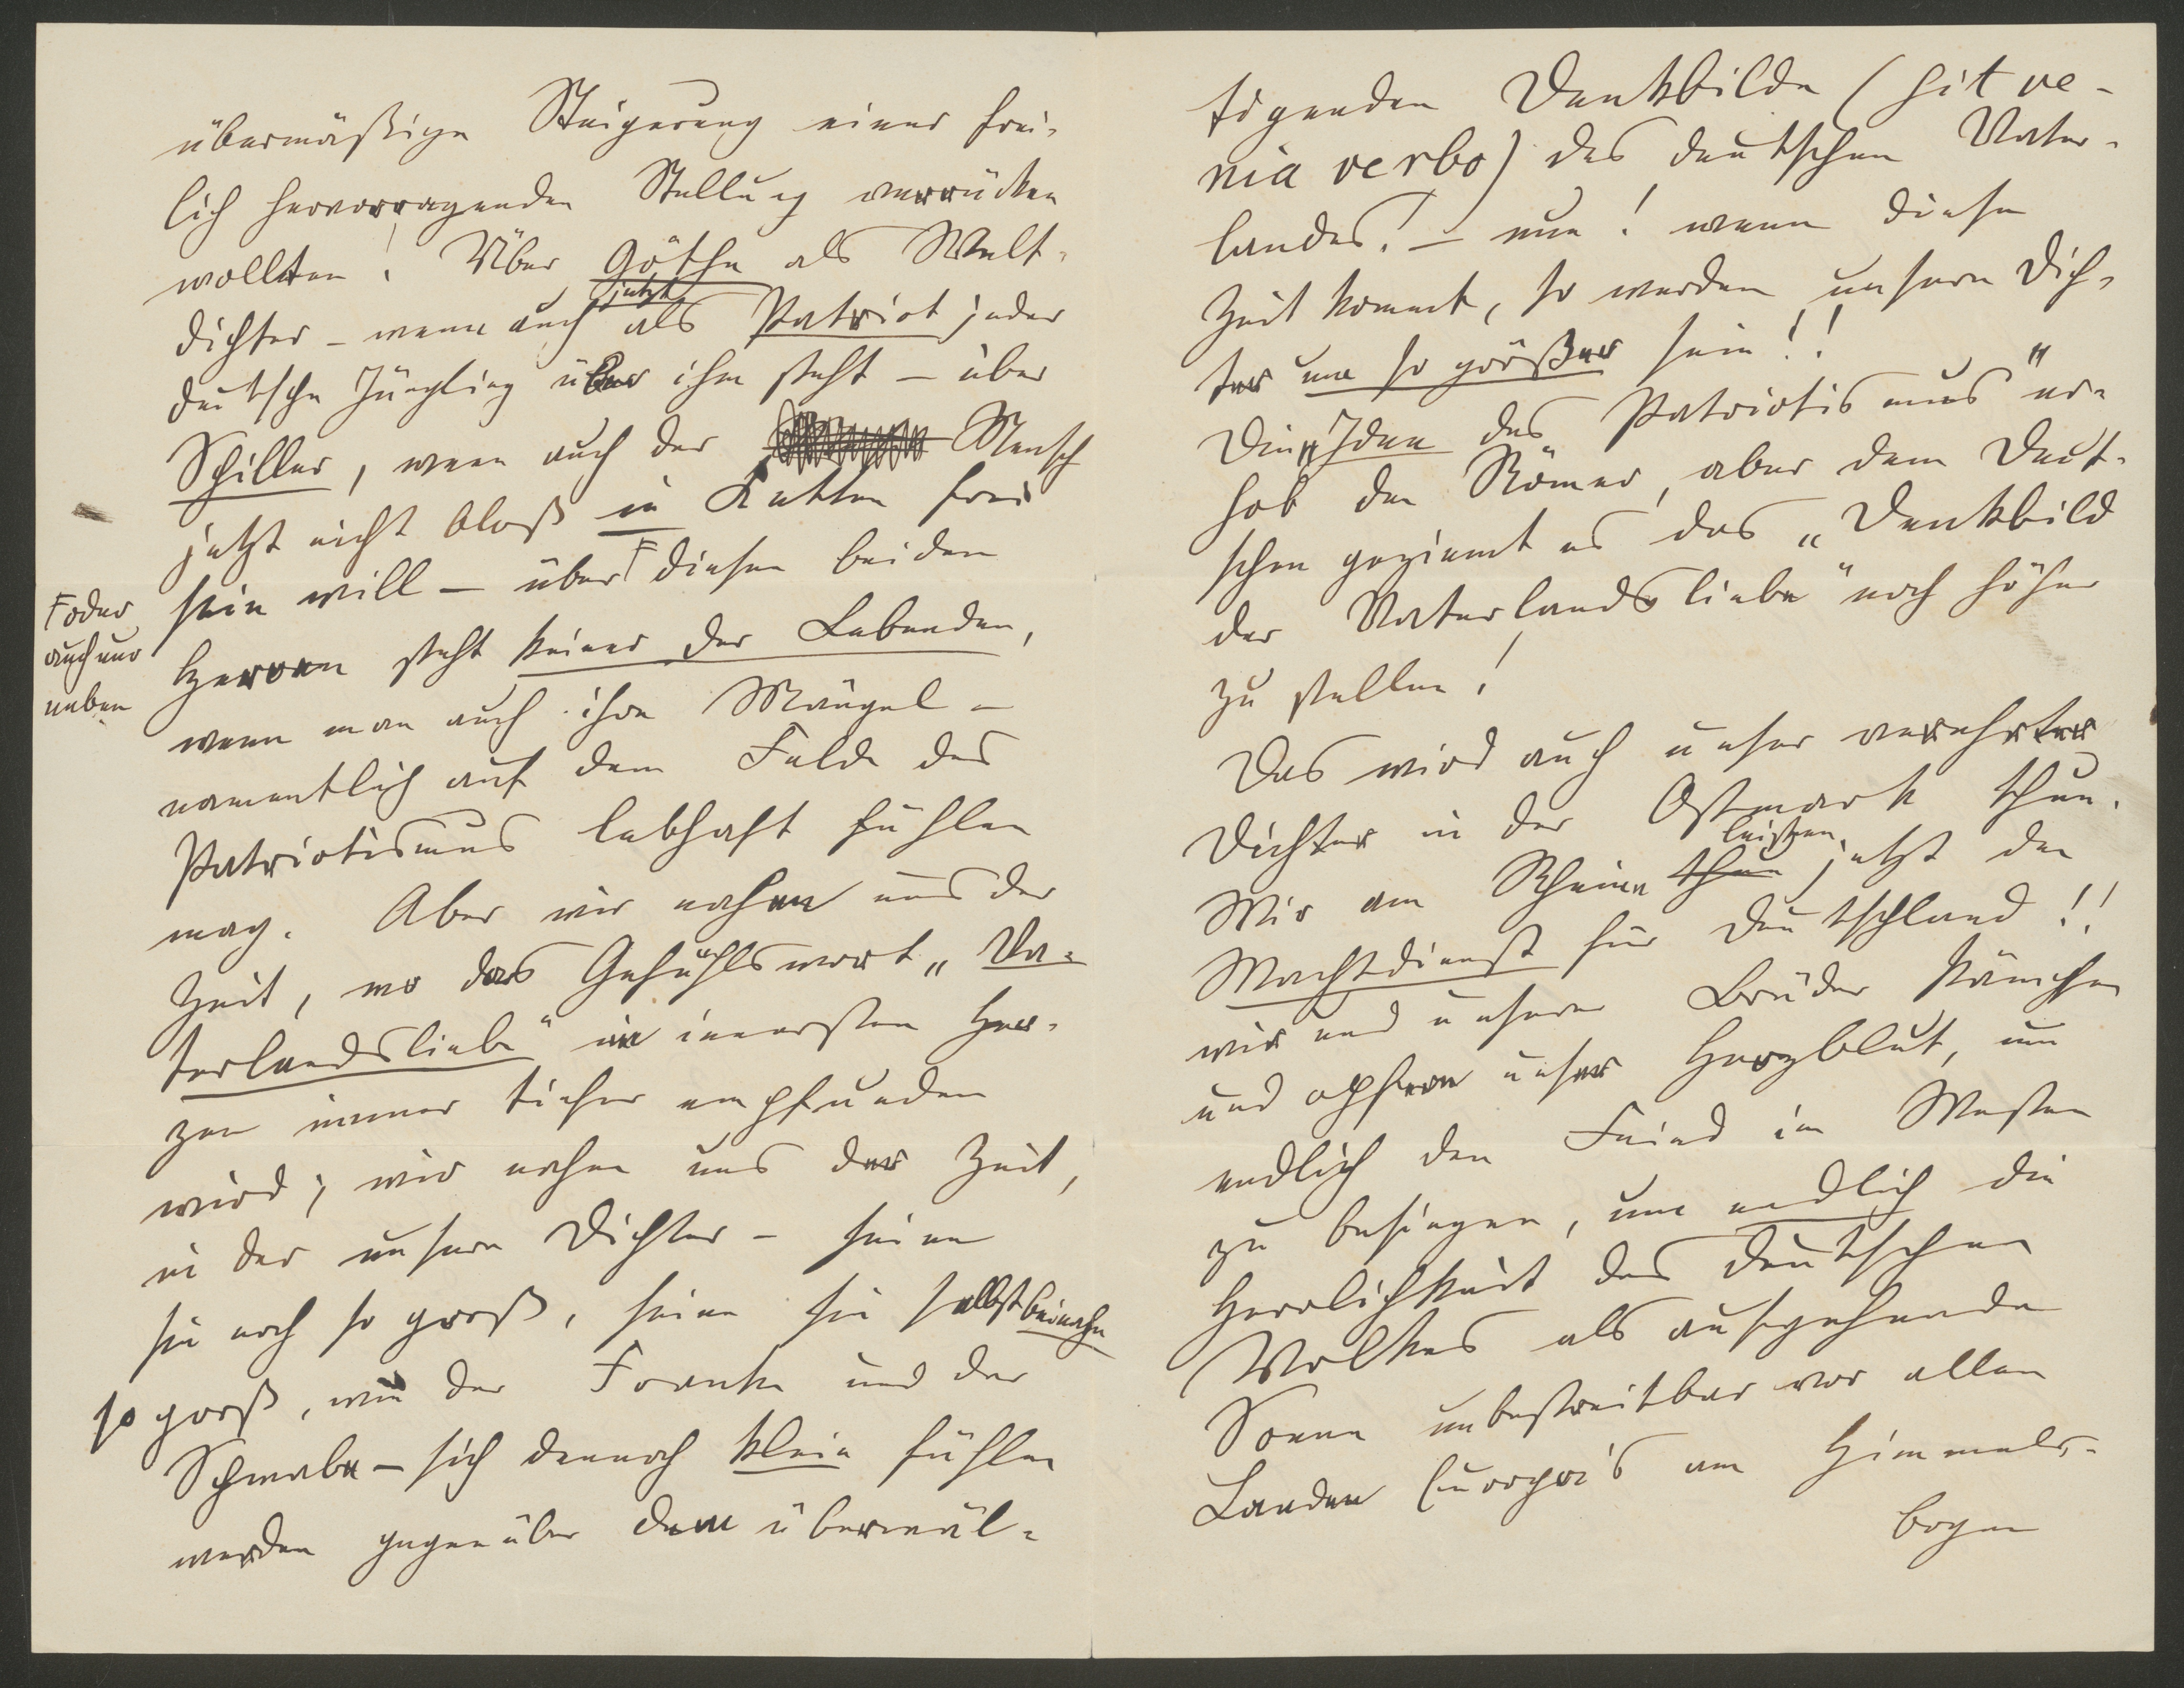 übermäßige Steigerung einer frei-
lich hervorragenden Stellung verrücken
wollten! Über Göthe als Welt-
dichter – wenn auch jetzt als Patriot jeder
deutsche Jüngling über ihm steht – über
Schiller, wenn auch der Mensch
jetzt nicht bloß in Ketten frei
sein will – über Ͱ diesen beiden
Ͱ oder
auch nur
neben
Heroen steht keiner der Lebenden,
wenn man auch ihre Mängel –
namentlich auf dem Felde des
Patriotismus lebhaft fühlen
mag. Aber wir nahen uns der
Zeit, wo das Gefühlswort „Va-
terlandsliebe“ im innersten Her-
zen immer tiefer empfunden
wird; wir nahen uns der Zeit,
in der unsere Dichter – seien
sie noch so groß, seien sie selbst beinahe
so groß, wie der Franke und der
Schwabe – sich dennoch klein fühlen
werden gegenüber dem überwäl-
tigenden Denkbilde (sit ve-
nia verbo) des deutschen Vater-
landes! – nun! wenn diese
Zeit kommt, so werden unsere Dich-
ter um so größer sein!!
Die „Idee des Patriotismus“ er-
hob den Römer, aber dem Deut-
schen geziemt es das „Denkbild
der Vaterlandsliebe“ noch höher
zu stellen!
Das wird auch unser verehrter
Dichter in der Ostmark thun.
Wir am Rheine thun leisten jetzt den
Wachtdienst für Deutschland!!
wir und unsere Brüder kämpfen
und opfern unser Herzblut, um
endlich den Feind im Westen
zu besiegen, um endlich die
Herrlichkeit des deutschen
Volkes als aufgehende
Sonne unbestreitbar vor allen
Landen Europa's am Himmels-
bogen